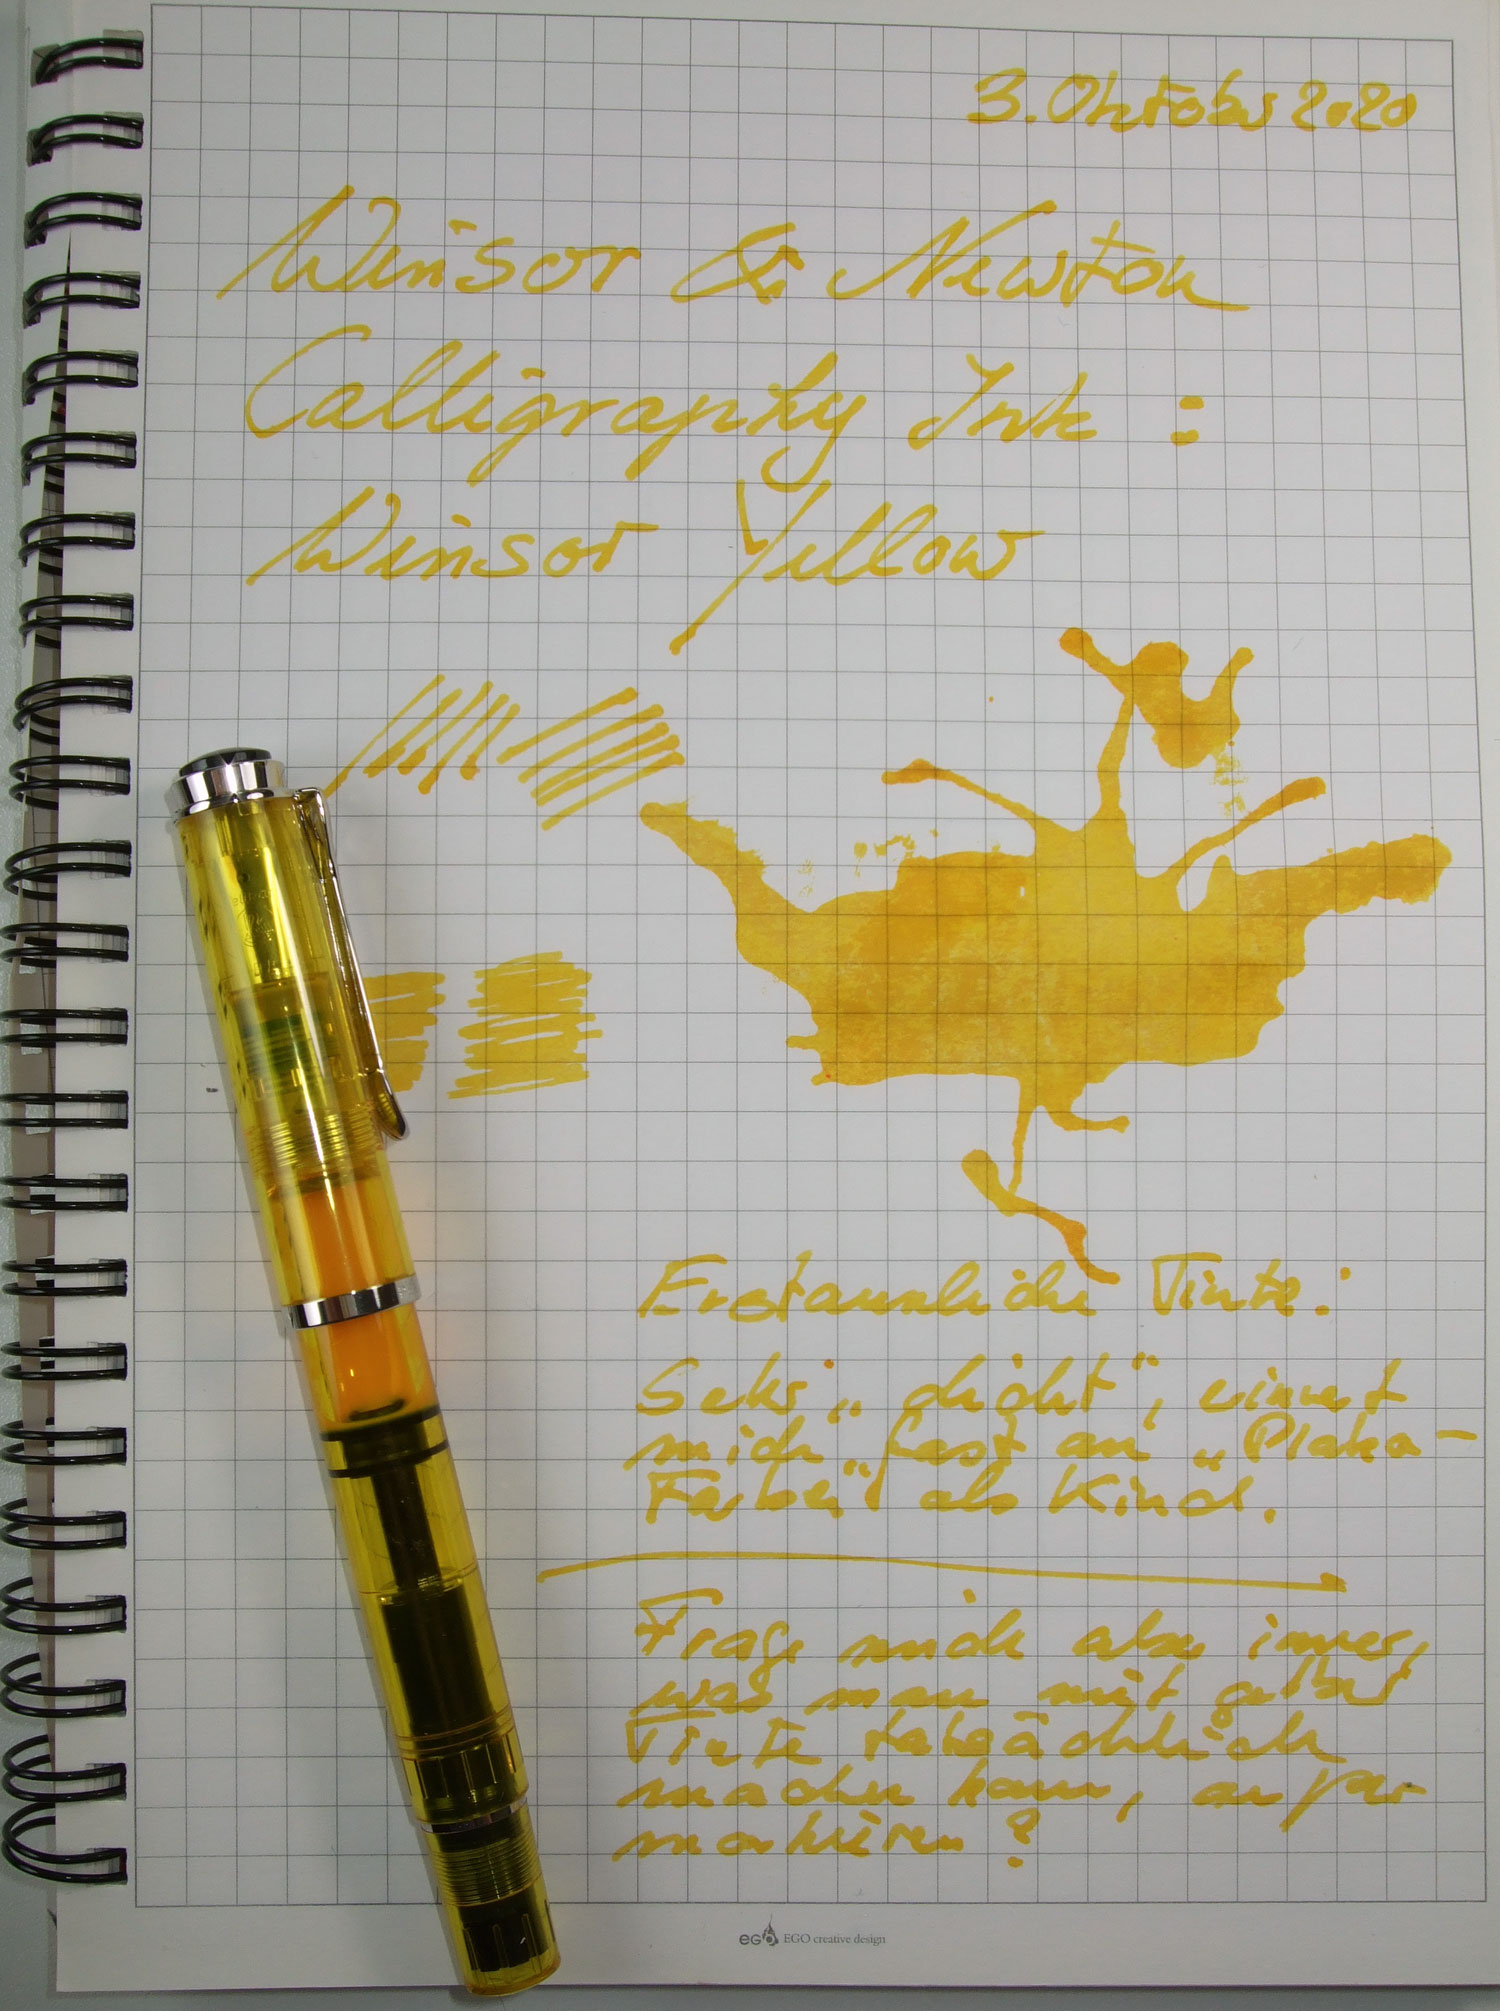 3. Oktober 2020
Winsor & Newton
Calligraphy Ink :
Winsor Yellow
Erstaunliche Tinte:
Sehr „dicht“, erinnert
mich fast an „Plaka-
Farben“ als Kind.
Frage mich aber immer,
was man mit gelber
Tinte tatsächlich
machen kann, außer
markieren?
EGO EGO creative design